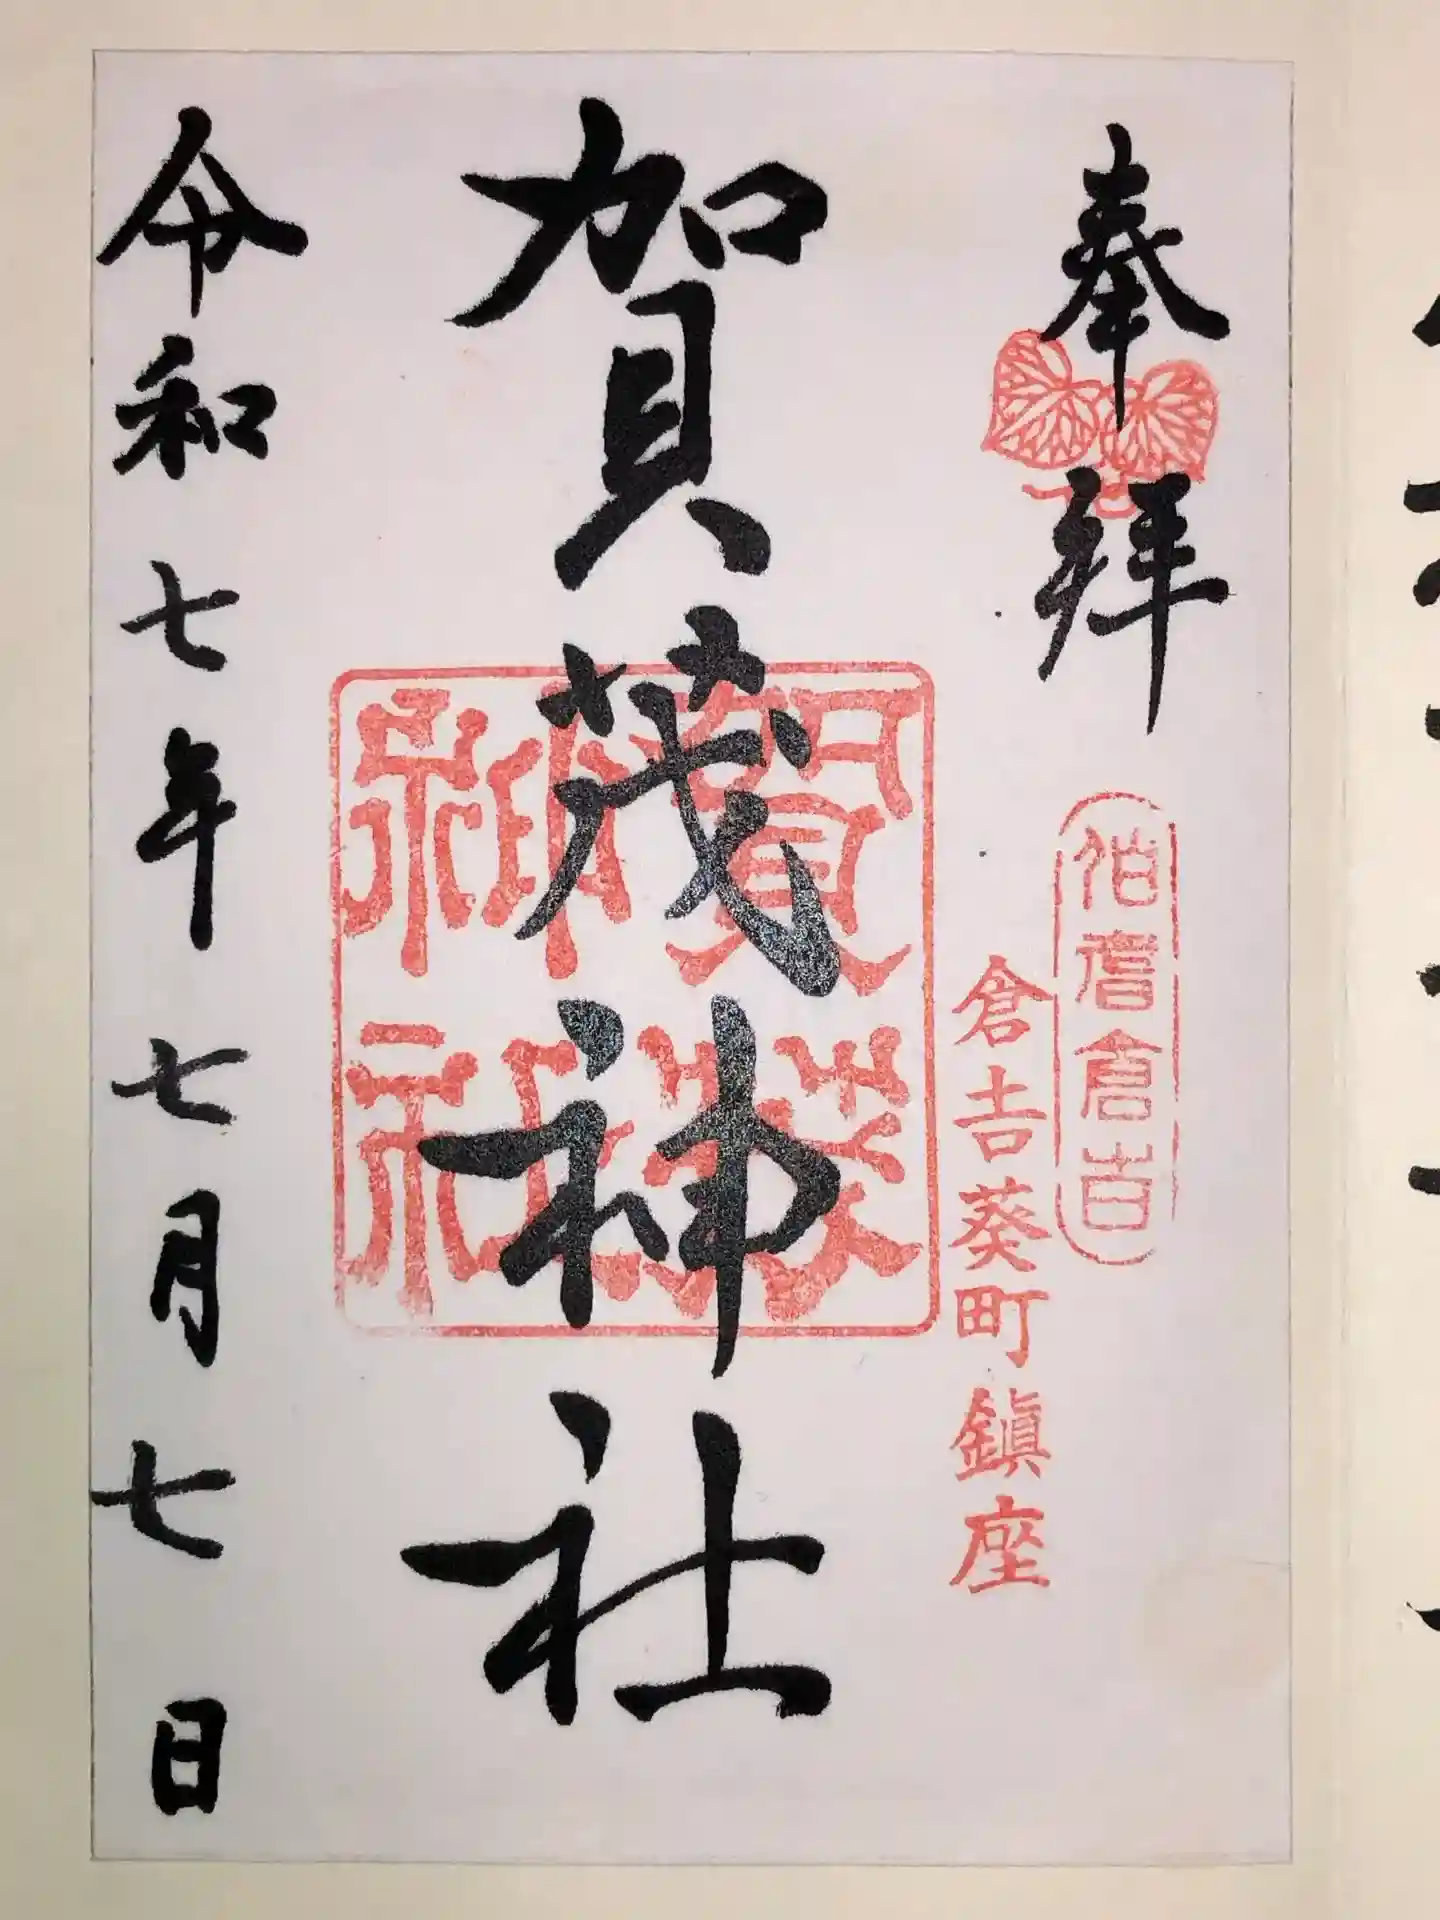 奉拝
伯耆倉吉
倉吉葵町鎭座
賀茂神社
賀茂神社
令和七年七月七日